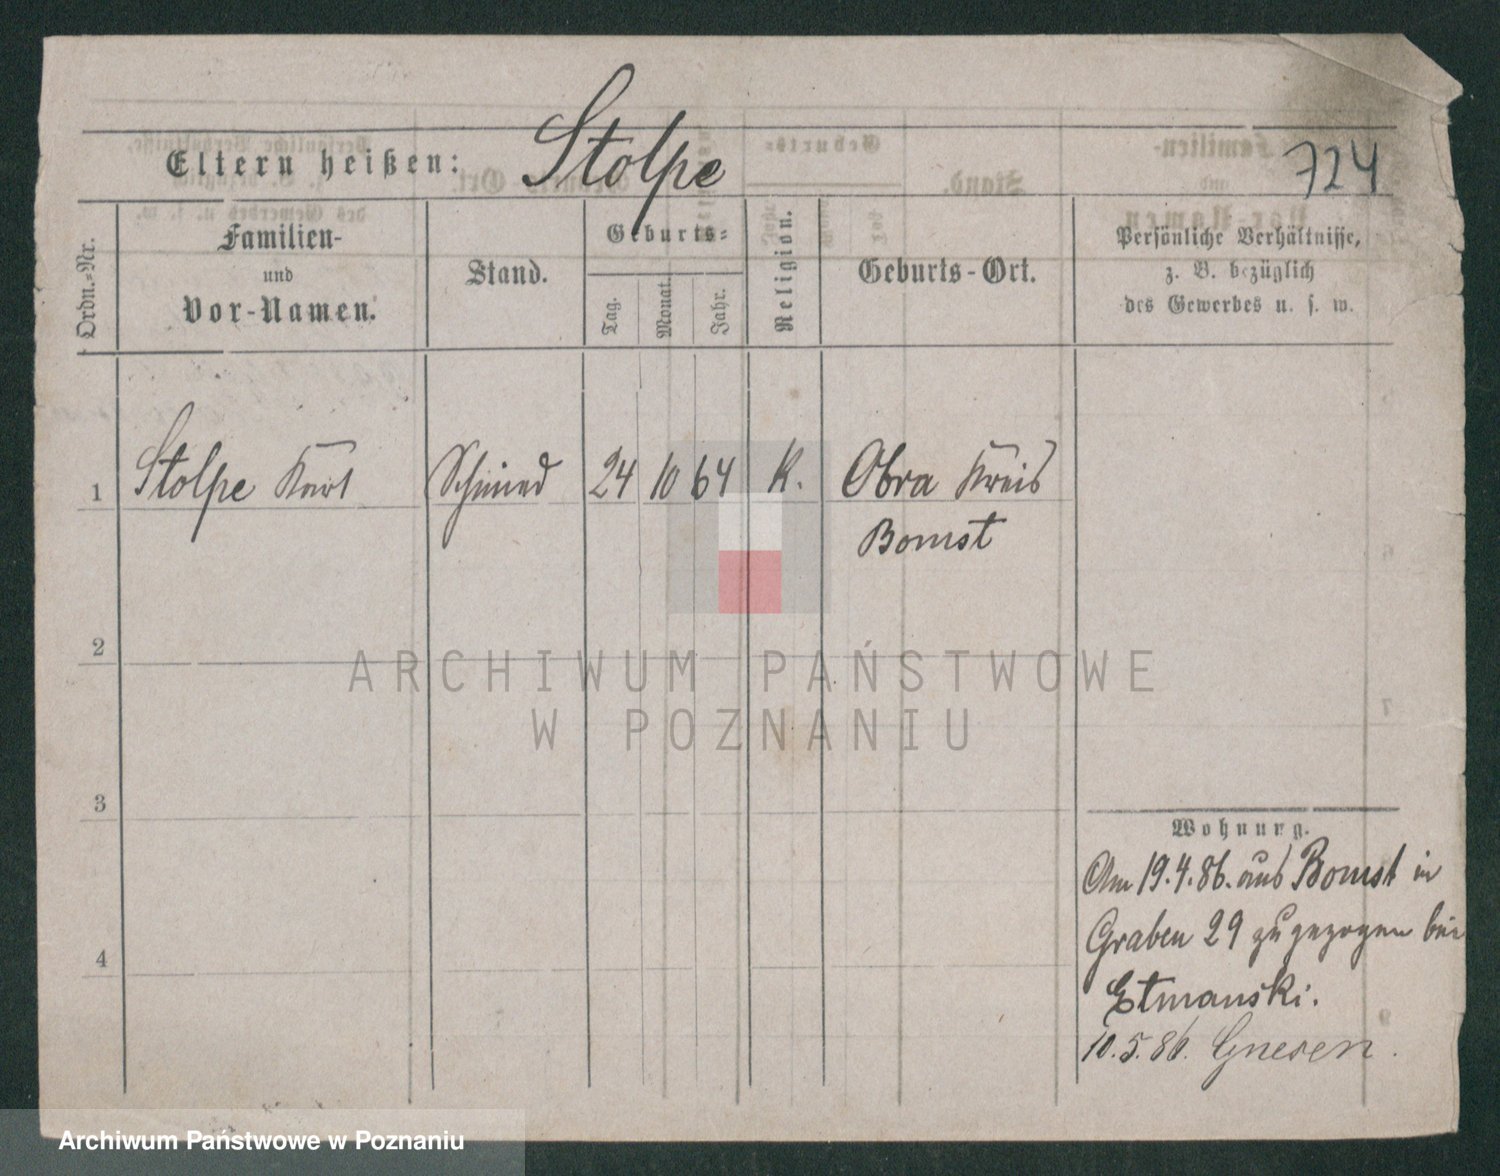 Eltern heißen: Stolpe
724
Ordn.-Nr.
Familien-
und
Vor-Namen.
Stand.
Geburts-
Tag.
Monat.
Jahr.
Religion.
Geburts-Ort.
Persönliche Verhältnisse,
z. B. bezüglich
des Gewerbes u. s. w.
1 Stolpe Karl Schmied 24 10 64 K. Obra Kreis
Bomst
2
3
4
Wohnung.
Am 19.4.86. aus Bomst in
Graben 29 zugezogen bei
Etmanski.
10.5.86. Gnesen.
ARCHIWUM PAŃSTWOWE
W POZNANIU
Archiwum Państwowe w Poznaniu